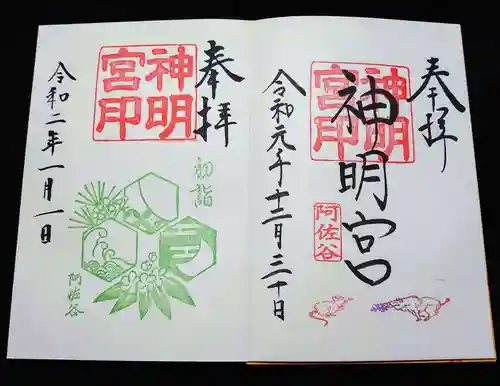 奉拝
神明宮
神明宮印
阿佐谷
令和元年十二月三十日
奉拝
神明宮印
初詣
阿佐谷
令和二年一月一日